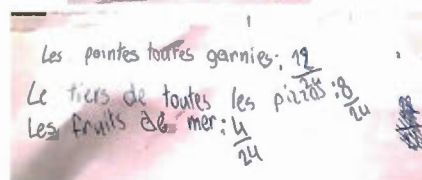 Les pointes toutes garnies: 12/24
Le tiers de toutes les pizzas: 8/24
Les fruits de mer: 4/24